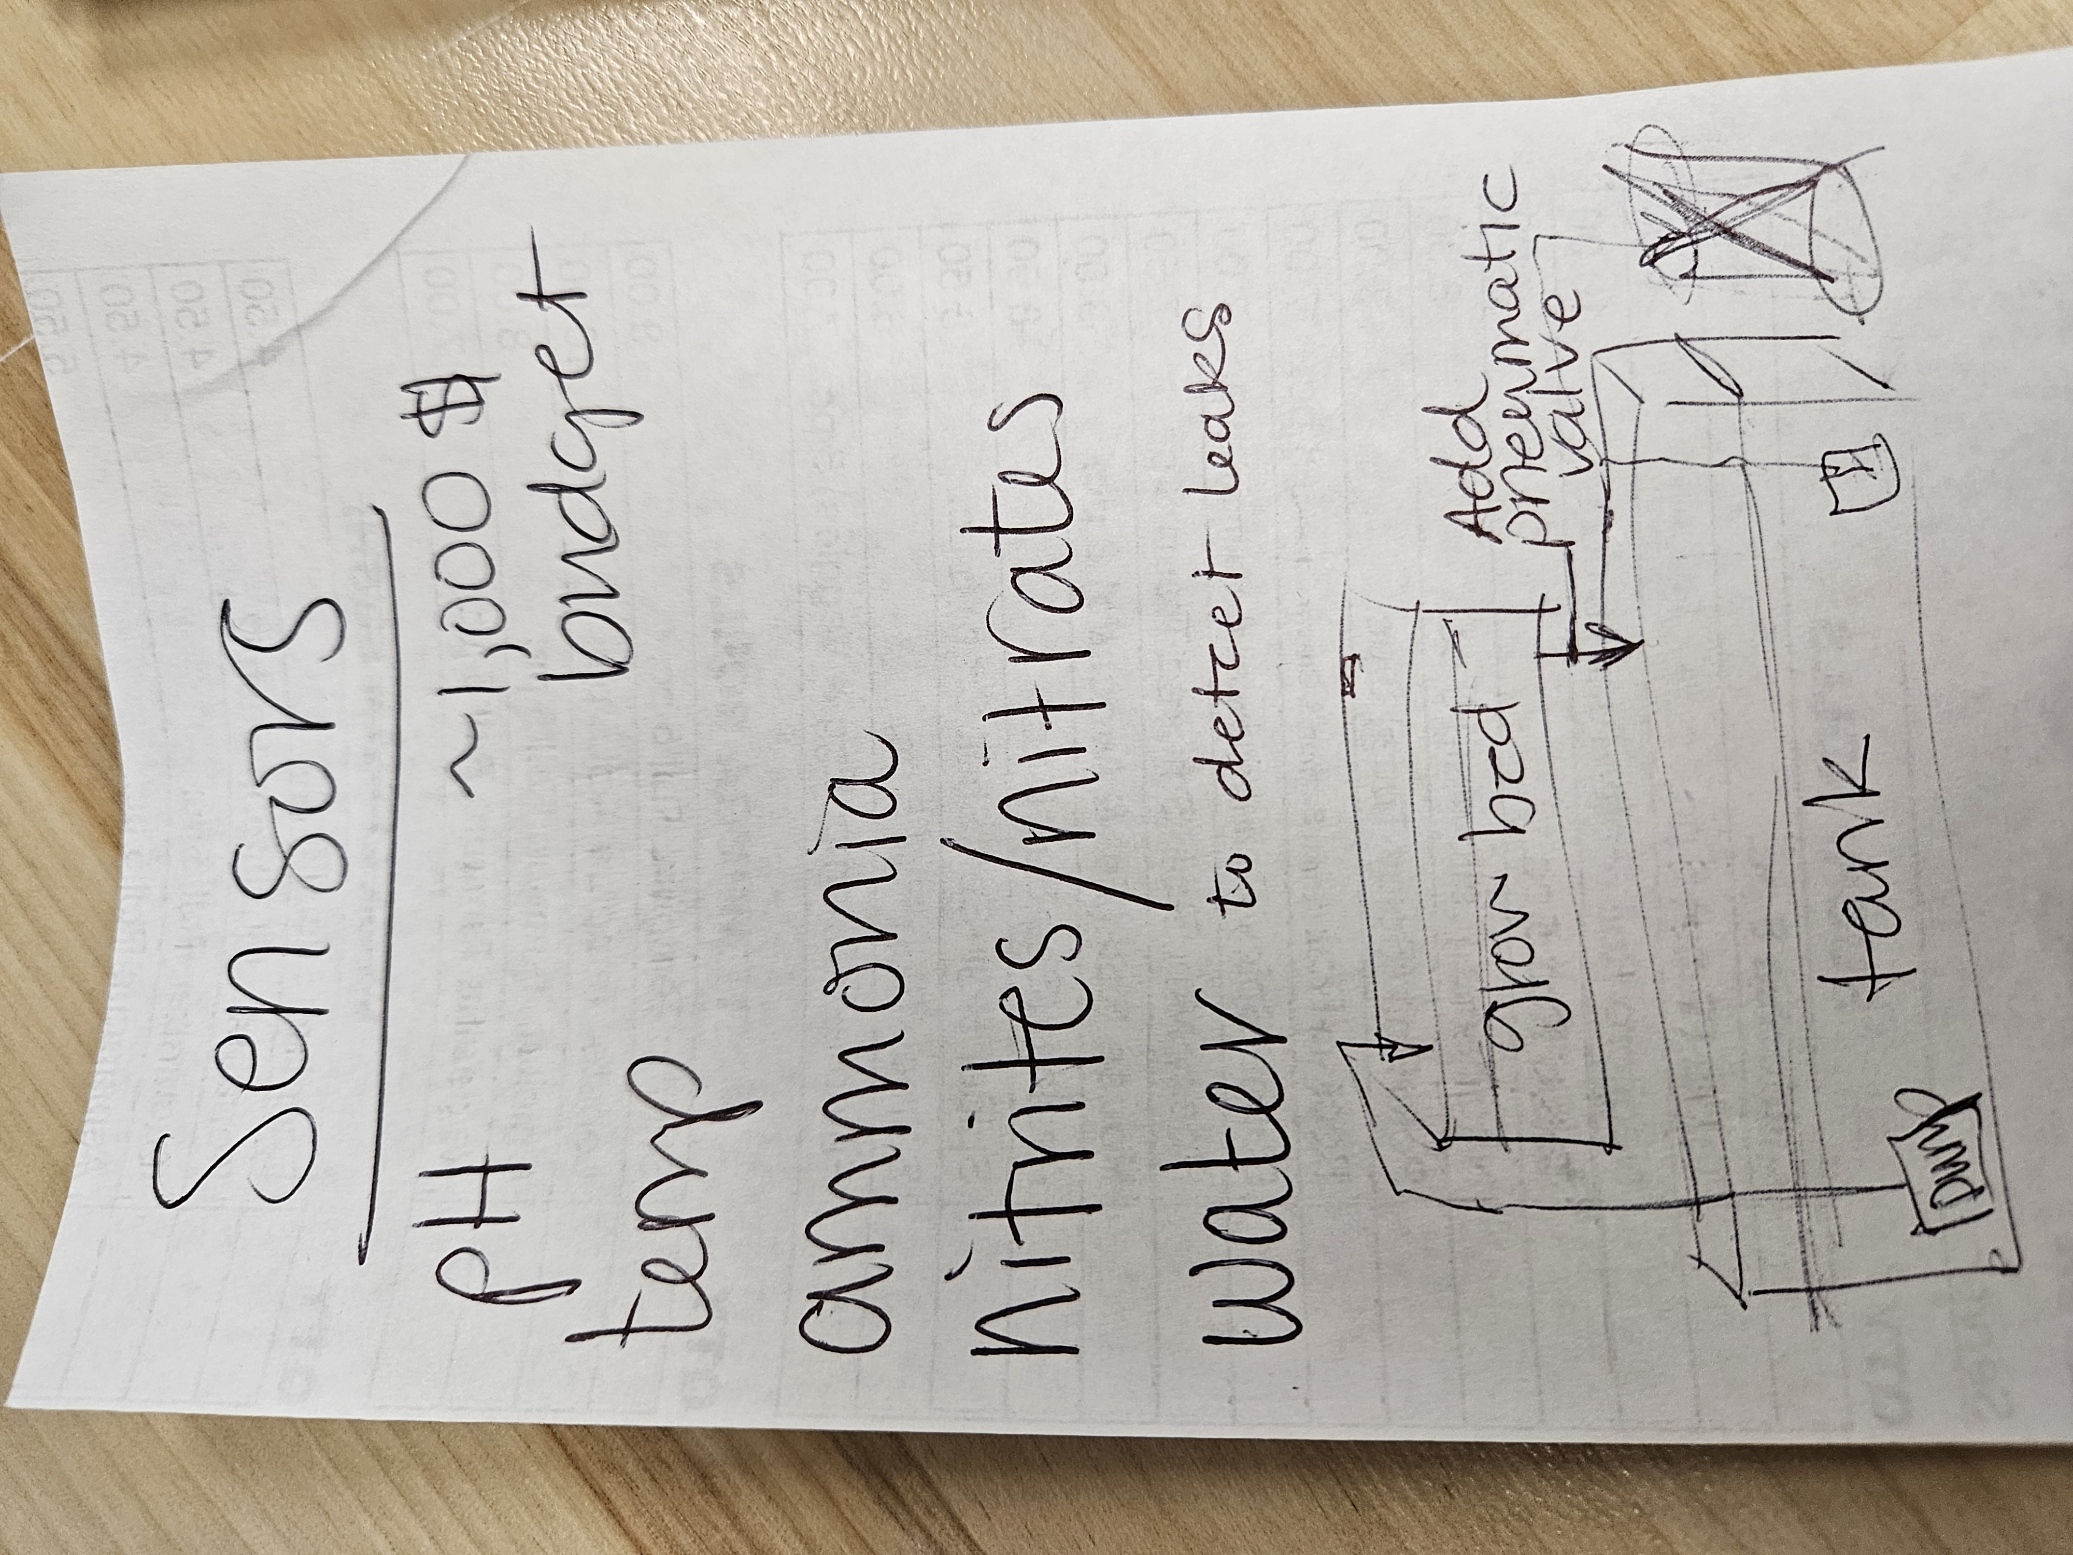 Sensors
pH
~1,000 $
budget
temp
ammonia
nitrites/nitrates
water to detcet leaks
grow bed
Add
pneumatic
valve
tank
Pump